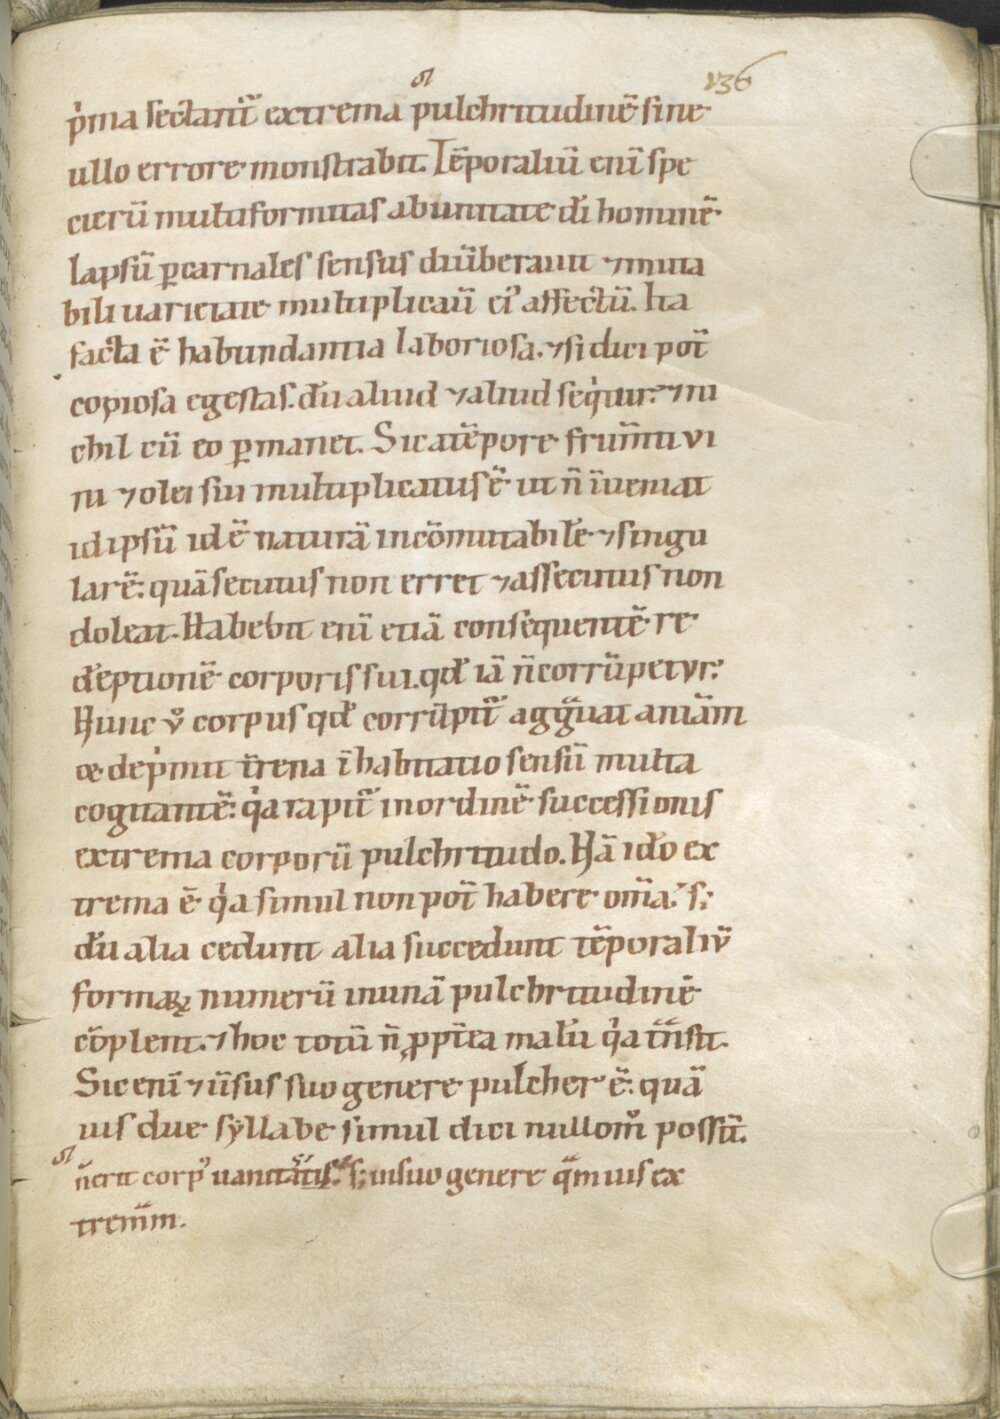 136
p'ma sectant᷑ extrema pulchritudinē sine
ullo errore monstrabit. Tēporaliū eni̅ spe
cierū multiformitas ab unitate dī hominē
lapsū ꝑ carnales sensus diūberauit ⁊ muta
bili uarietate multiplicauī eiꝰ affectū. Ita
facta ē habundantia laboriosa. ⁊ si dici pot̄
copiosa egestas. dū aliud ⁊ aliud seq'tur. ⁊ ni
chil cū eo ꝑmanet. Sic a tēpore frum̄ti vi
ni ⁊ olei sui multiplicatus ē ut n̄ īueniat
id ipsū id ē naturā incōmutabilē ⁊ singu
larē: quā secutus non erret ⁊ assecutus non
doleat. Habebit eni̅ etiā consequentē re
dēptionē corporis sui. qđ iā n̄ corrūpetur.
Nunc v̊ corpus qđ corrūpit᷑ aggͣuat aniām
& dep'mit t̄rena īhabitatio sensū multa
cogitantē: q'a rapit᷑ in ordinē successionis
extrema corporū pulchritudo. Nā ido ex
trema ē q'a simul non pot̄ habere om̄a. s;
dū alia cedunt alia succedunt tēporaliū
formaꝝ numerū in unā pulchritudinē
cōplent. ⁊ hoc totū n̄ ꝓpt̄ea malū q'a tͣnsit.
Sic eni̅ ⁊ ūsus suo genere pulcher ē: quā
uis due syllabe simul dici nullom̊ possūt.
n̄ erit corpꝰ uanitātis. s; in suo genere qͣmuis ex
trem̄m.